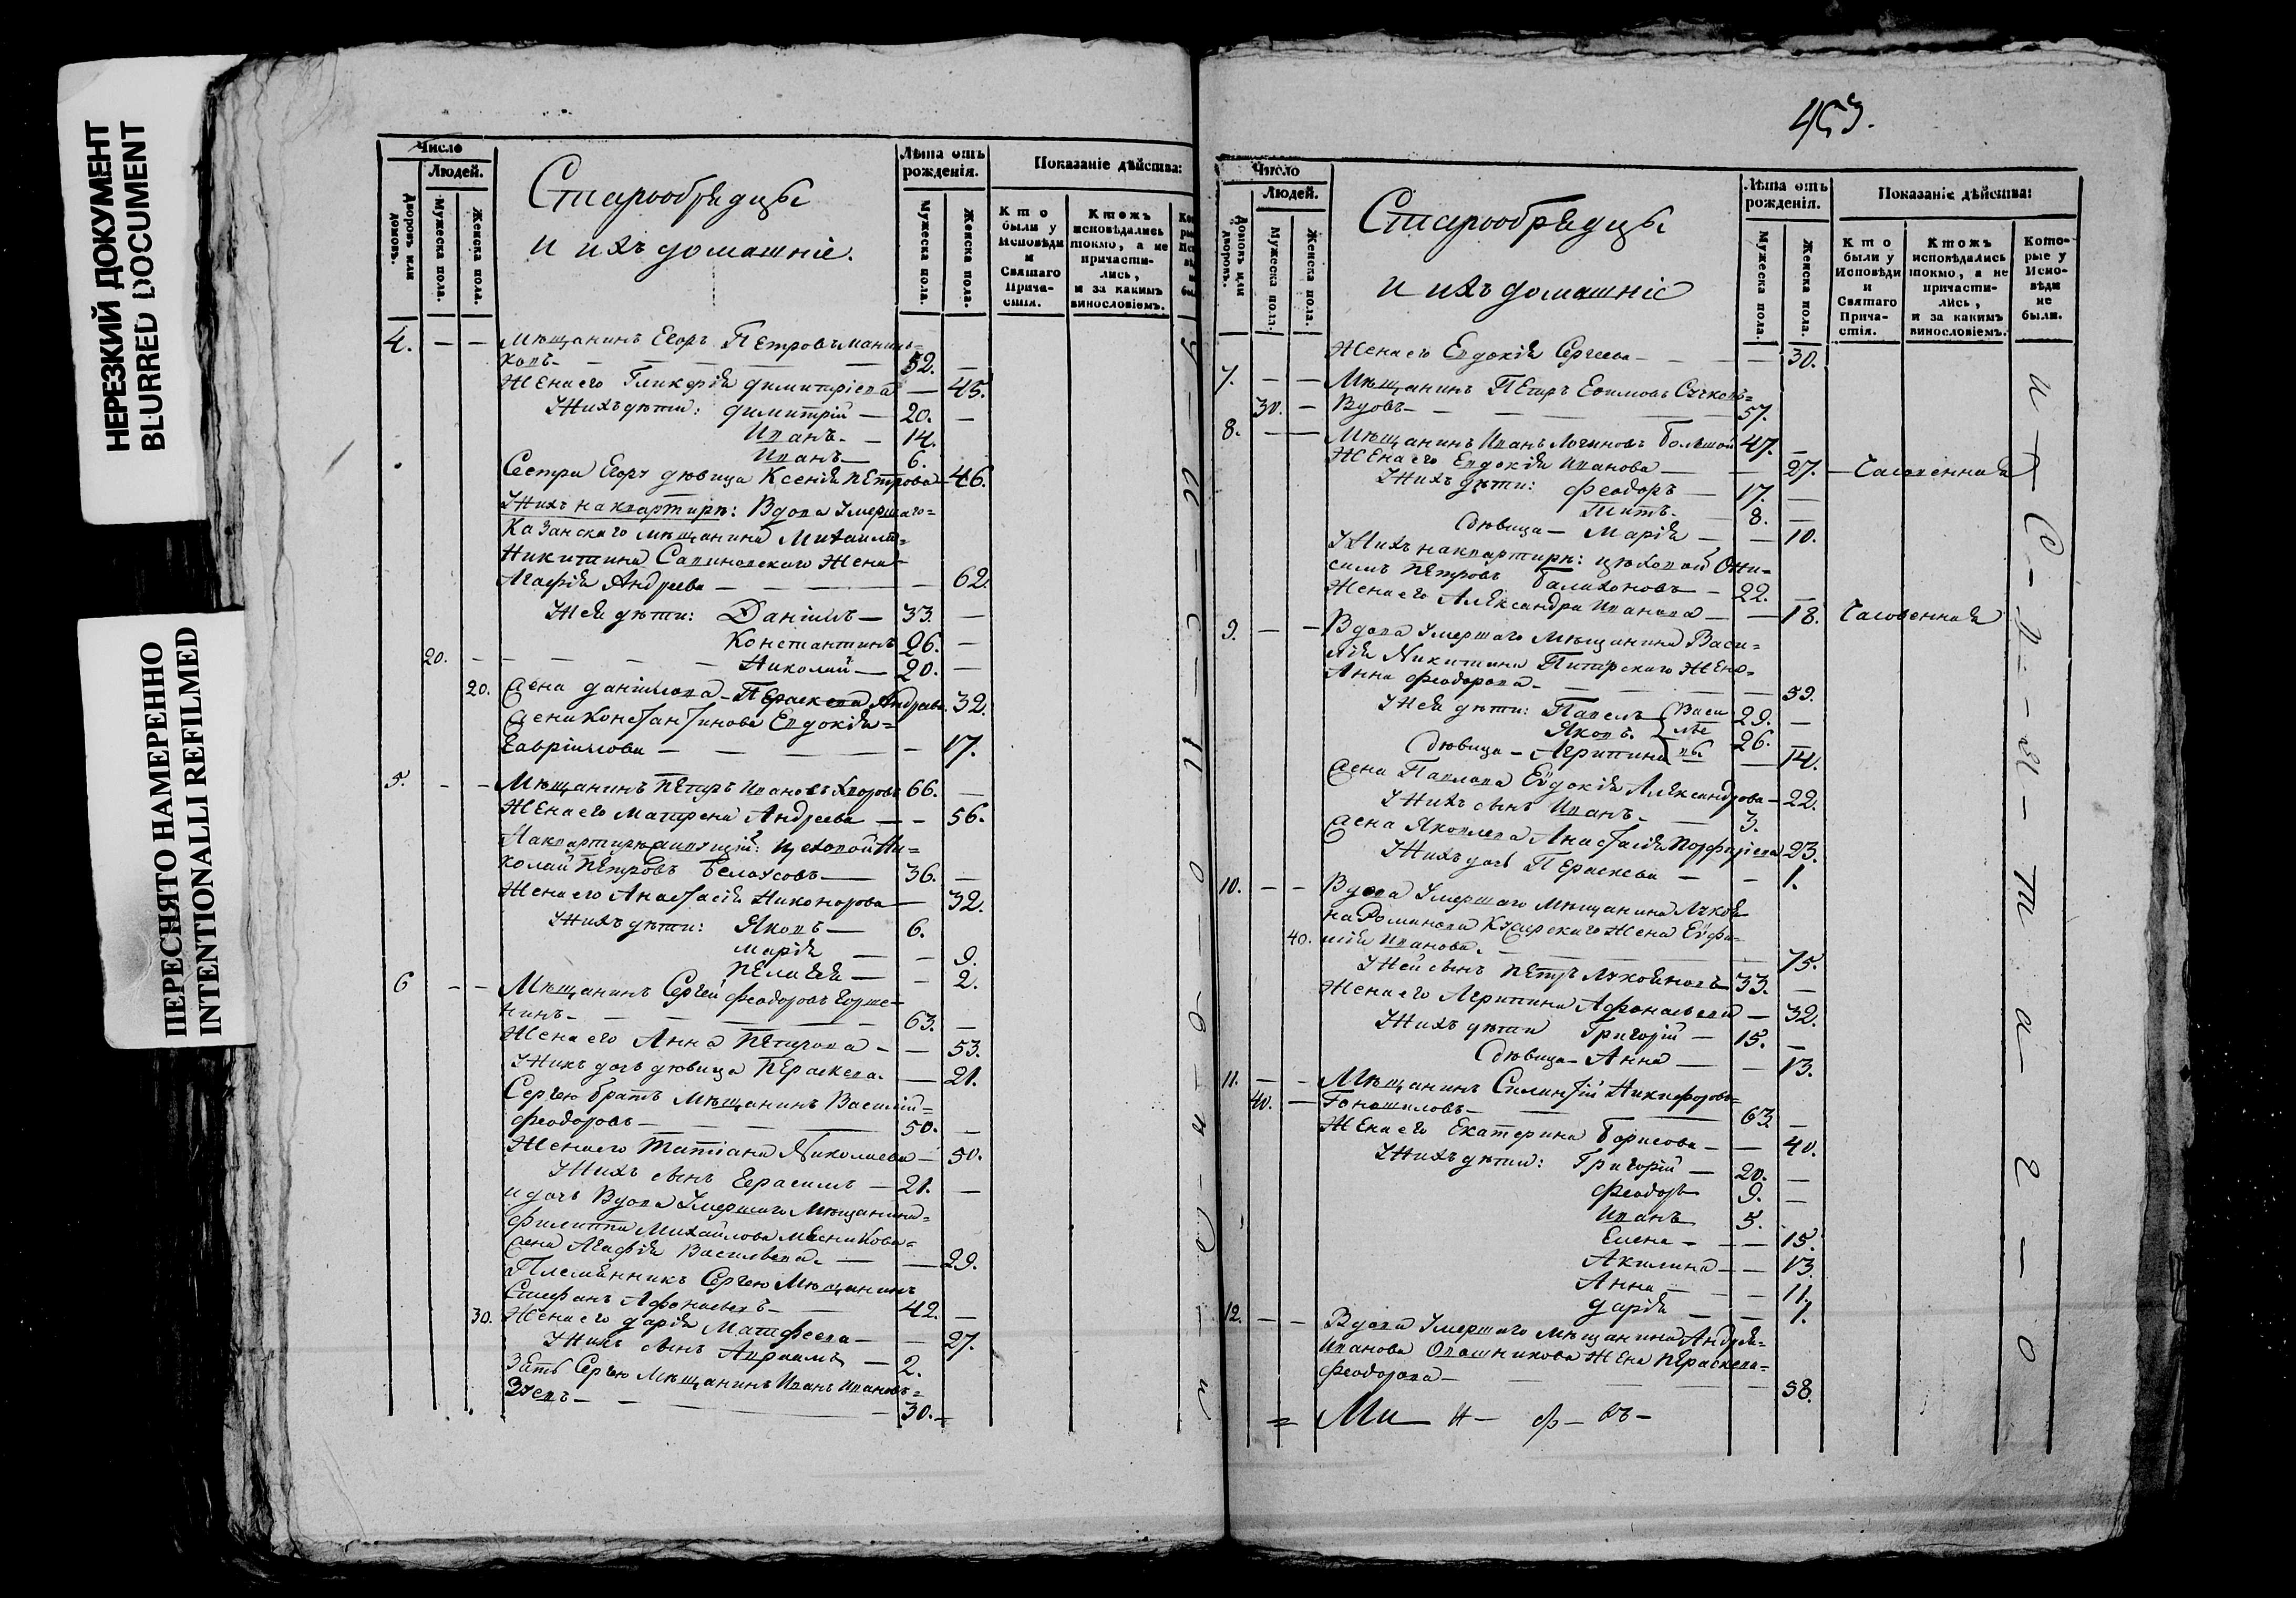 НЕРЕЗКИЙ ДОКУМЕНТ
BLURRED DOCUMENT
ПЕРЕСНЯТО НАМЕРЕННО
INTENTIONALLI REFILMED
Число
Людей.
Дворовъ или домовъ.
Мужеска пола.
Женска пола.
Старообрядцы
и ихъ домашніе.
Лѣта отъ рожденія.
Мужеска пола.
Женска пола.
Показаніе дѣйства:
Кто были у Исповѣди и Святаго Прича-стія.
Ктожъ исповѣдались токмо, а не причасти-лись, и за какимъ винословіемъ.
4. — — Мѣщанинъ Егоръ Петровъ
52. —
Жена его Гликерія Димитріева — 45.
У нихъ дѣти: Димитрій — 20. —
Иванъ. — 14.
Иванъ — 6.
Сестра Егору дѣвица Ксенія Петрова — 46.
У нихъ на квартирѣ: Вдова умершаго=
Казанскаго мѣщанина Михаила=
Никитина Жена=
Агафія Андреева — — 62.
У ней дѣти: Даніилъ — 33. —
Константинъ 26. —
20. — Николай — 20. —
20. Жена Данилова — Параскева Андреева. 32.
Жена Константинова Евдокія=
Гавріилова — — 17.
5. — — Мѣщанинъ Петръ Ивановъ 66. —
Жена его Матрена Андреева — — 56.
На квартирѣ живущій: цеховой Ни=
колай Петровъ Белоусовъ — 36. —
Жена его Анастасія Никонорова — 32.
У нихъ дѣти: Яковъ — 6.
Марія — — 9.
Пелагея — — 2.
6 — — Мѣщанинъ Сергей Феодоровъ
нинъ — 63. —
Жена его Анна Петрова — — 53.
У нихъ дочь дѣвица Параскева. — 21.
Сергею братъ Мѣщанинъ Василій=
Феодоровъ — 50. —
Жена его Татіана Николаева — 50.
У нихъ сынъ Герасимъ — 21. —
и дочь Вдова умершаго Мѣщанина=
Филиппа Михайлова Мясникова=
жена Агафія Васильева. — — 29.
Племянникъ Сергею Мѣщанинъ
Стефанъ Афонасьевъ — 42. —
30. Жена его Дарія Матфеева — — 27.
У нихъ сынъ Авраамъ — 2.
Зять Сергею Мѣщанинъ Иванъ Ивановъ=
Зуевъ — 30. —
453.
Число
Людей.
Домовъ или дворовъ.
Мужеска пола.
Женска пола.
Старообрядцы
и ихъ домашніе
Лѣта отъ рожденія.
Мужеска пола.
Женска пола.
Показаніе дѣйства:
Кто были у Исповѣди и Святаго Прича-стія.
Ктожъ исповѣдались токмо, а не причасти-лись, и за какимъ винословіемъ.
Кото-рые у Испо-вѣди не были.
Жена его Евдокія Сергеева — — 30.
7. — — Мѣщанинъ Петръ Ефимовъ
30. — Вдовъ — 57.
8. — — Мѣщанинъ Иванъ Логиновъ Большой 47. —
Жена его Евдокія Иванова — — 27. — Часовенная
У нихъ дѣти: Феодоръ — 17. —
Титъ. — 8. —
Дѣвица — Марія — — 10.
У нихъ на квартирѣ: цѣховой Они=
симъ Петровъ Балахоновъ — 22. —
Жена его Александра Иванова — — 18. Часовенная
9. — — Вдова умершаго Мѣщанина Васи=
лія Никитина Жена=
Анна Феодорова — — 59.
У ней дѣти: Павелъ } Васи 29. —
Яковъ. } лье 26. —
Дѣвица — Агрипина } вы. — 14.
Жена Павлова Евдокія Александрова — 22.
У нихъ сынъ Иванъ. — 3.
Жена Яковлева Анастасія Порфиріева 23.
У нихъ дочь Параскева — — 1.
10. — — Вдова умершаго Мѣщанина Лукоя
40. Жена Евфи=
мія Иванова. — 75.
У ней сынъ Петръ Лукояновъ 33. —
Жена его Агрипина Афонасьева — 32.
У нихъ дѣти Григорій — 15. —
Дѣвица — Анна — — 13.
11. — — Мѣщанинъ Никифоровъ=
40. — 63 —
Жена его Екатерина Борисова — — 40.
У нихъ дѣти: Григорій — 20. —
Феодоръ 9. —
Иванъ 5.
Елена — — 15.
Акилина — — 13.
Анна — — 11.
Дарія — 1.
12. — — Вдова умершаго Мѣщанина Андрея=
Иванова Жена Параскева=
Феодорова — — 58.